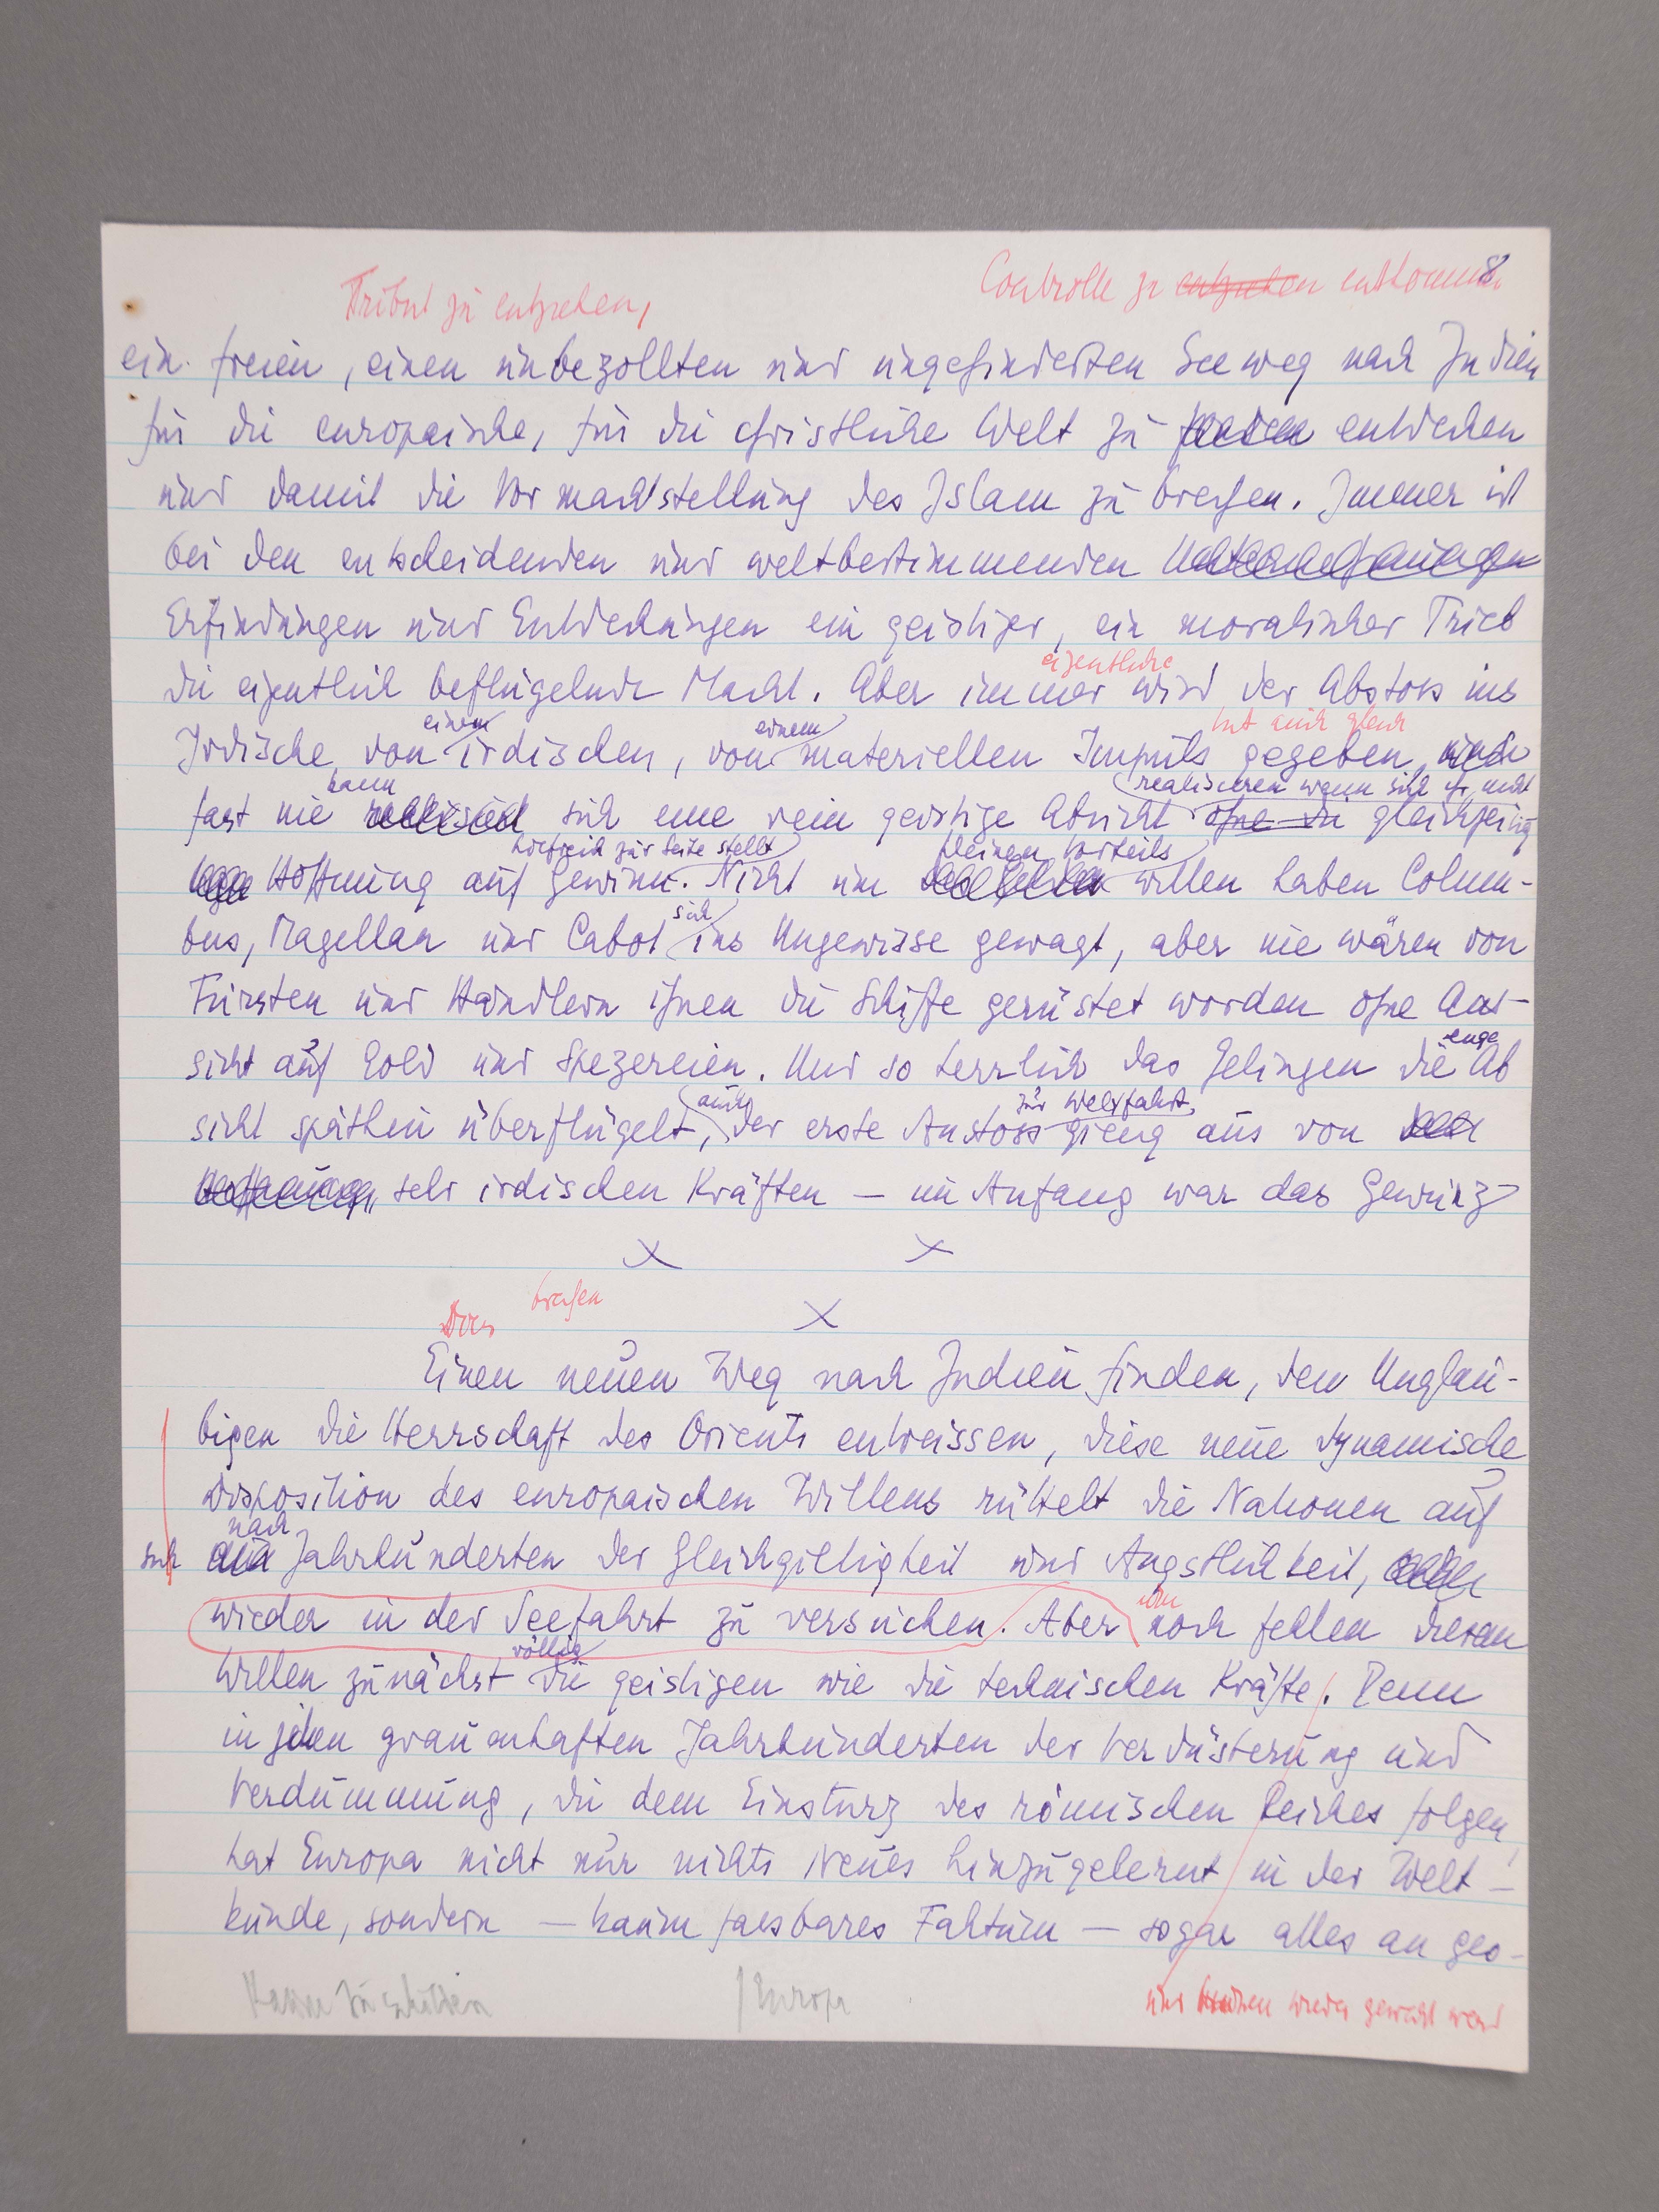 8
Controlle zu entziehen entkommen
Tribut zu entziehen,
ein freien, einen unbezollten und ungehinderten Seeweg nach Indien
für die europaische, für die christliche Welt zu entdecken
und damit die Vormachtstellung des Islam zu brechen. Immer ist
bei den entscheidenden und weltbestimmenden
Erfindungen und Entdeckungen ein geistiger, ein moralischer Trieb
eigentliche
die eigentlich beflügelnde Macht. Aber immer wird der Abstoss ins
einem einem
Irdische von irdischen, von materiellen Impuls gegeben, und
kann realisieren wenn sich ihr nicht
fast nie sich eine rein geistige Absicht ohne die gleichzeitig
hilfreich zur Seite stellt kleinen Vorteils
Hoffnung auf Gewinn. Nicht um willen haben Colum-
sich
bus, Magellan und Cabot ins Ungewisse gewagt, aber nie wären von
Fürsten und Händlern ihnen die Schiffe gerüstet worden ohne Aus-
enge
sicht auf Gold und Spezereien. Und so herrlich das Gelingen die Ab
auch zur Weltfahrt
sicht späthin überflügelt, der erste Anstoss gieng aus von
sehr irdischen Kräften — im Anfang war das Gewürz
x x
brechen
x
Doch
Einen neuen Weg nach Indien finden, den Unglau-
bigen die Herrschaft des Orients entreissen, diese neue dynamische
Disposition des europaischen Willens rüttelt die Nationen auf
nach
sich Jahrhunderten der Gleichgiltigkeit und Angstlichkeit,
wieder in der Seefahrt zu versuchen. Aber noch fehlen diesem
völlig
Willen zunächst die geistigen wie die technischen Kräfte. Denn
in jenen grauenhaften Jahrhunderten der Verdüsterung und
Verdummung, die dem Einsturz des römischen Reiches folgen,
hat Europa nicht nur nichts Neues hinzugelernt in der Welt-
kunde, sondern — kaum fassbares Faktum — sogar alles an geo-
Europa